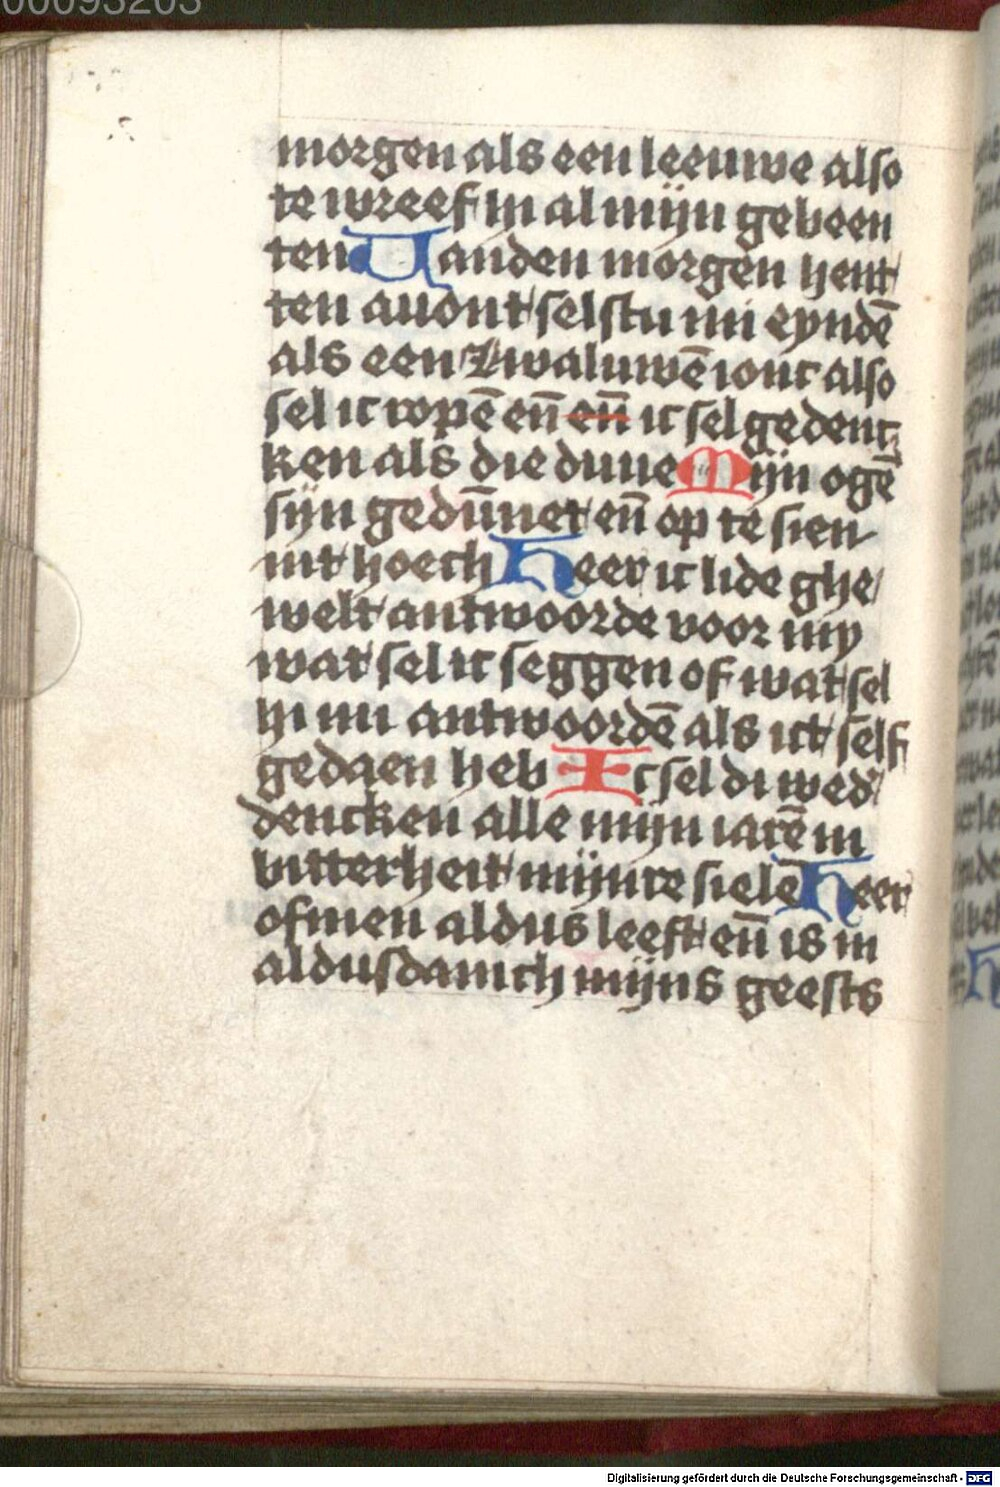 00093203
morgen als een leeuwe also
te wreef hi al mijn gebeen
ten Uanden morgen hent
ten auont selstu mi eyndē
als een zwaluwē ionc also
sel ic ropē en̄ en̄ ic sel gedenc
ken als die duue Mijn ogē
sijn gedūnet en̄ op te sien
uit hoech Heer ic lide ghe
welt antwoorde voor my
wat sel ic seggen of wat sel
hi mi antwoordē als ict self
gedaen heb Ic sel di wed'
dencken alle mijn iarē in
bitterheit mijnre sielē Heer
ofmen aldus leeft en̄ is in
aldusdanich mijns geests
Digitalisierung gefördert durch die Deutsche Forschungsgemeinschaft - DFG